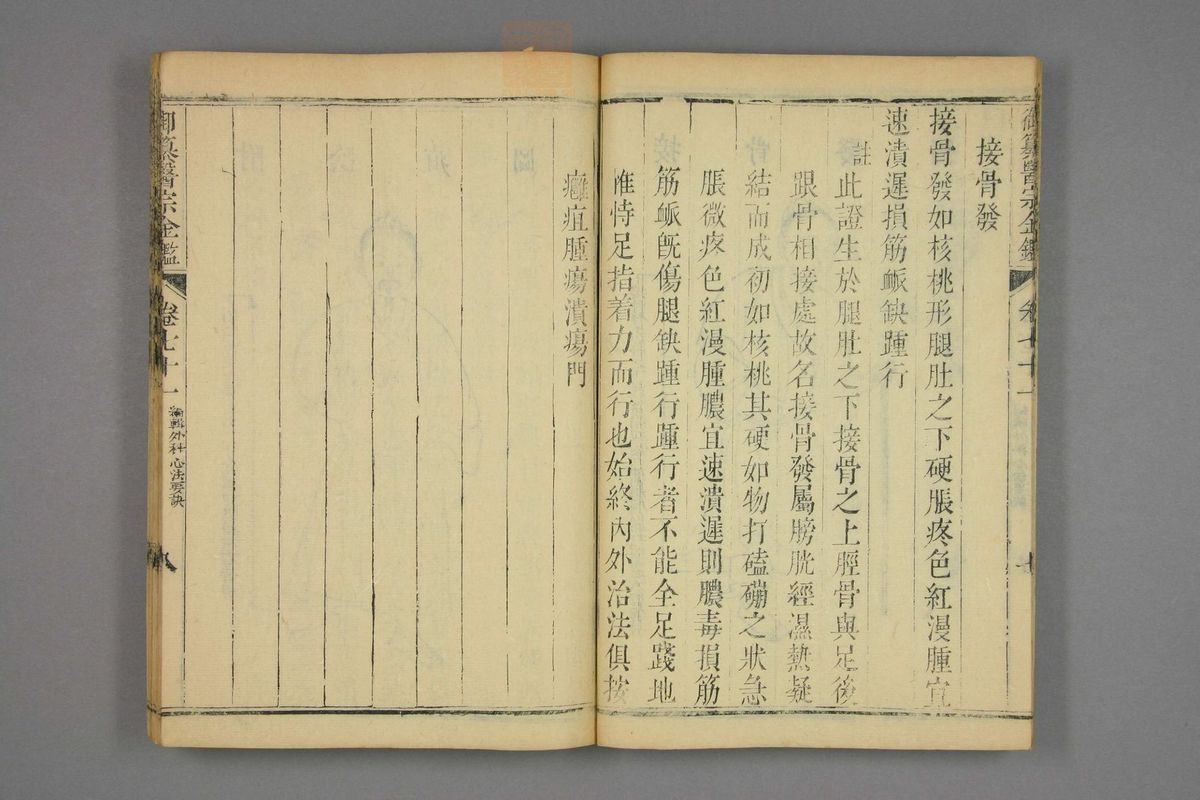 接骨發
接骨發如核桃形腿肚之下硬脹疼色紅漫腫宜
速潰遲損筋衇缺踵行
註此證生於腿肚之下接骨之上脛骨與足後
跟骨相接處故名接骨發屬膀胱經濕熱凝
結而成初如核桃其硬如物打磕磞之狀急
脹微疼色紅漫腫膿宜速潰遲則膿毒損筋
筋衇既傷腿缺踵行踵行者不能全足踐地
惟恃足指着力而行也始終內外治法俱按
癰疽腫瘍潰瘍門
御纂醫宗金鑑
卷七十一
編輯外科心法要訣
八
御纂醫宗金鑑
卷七十一